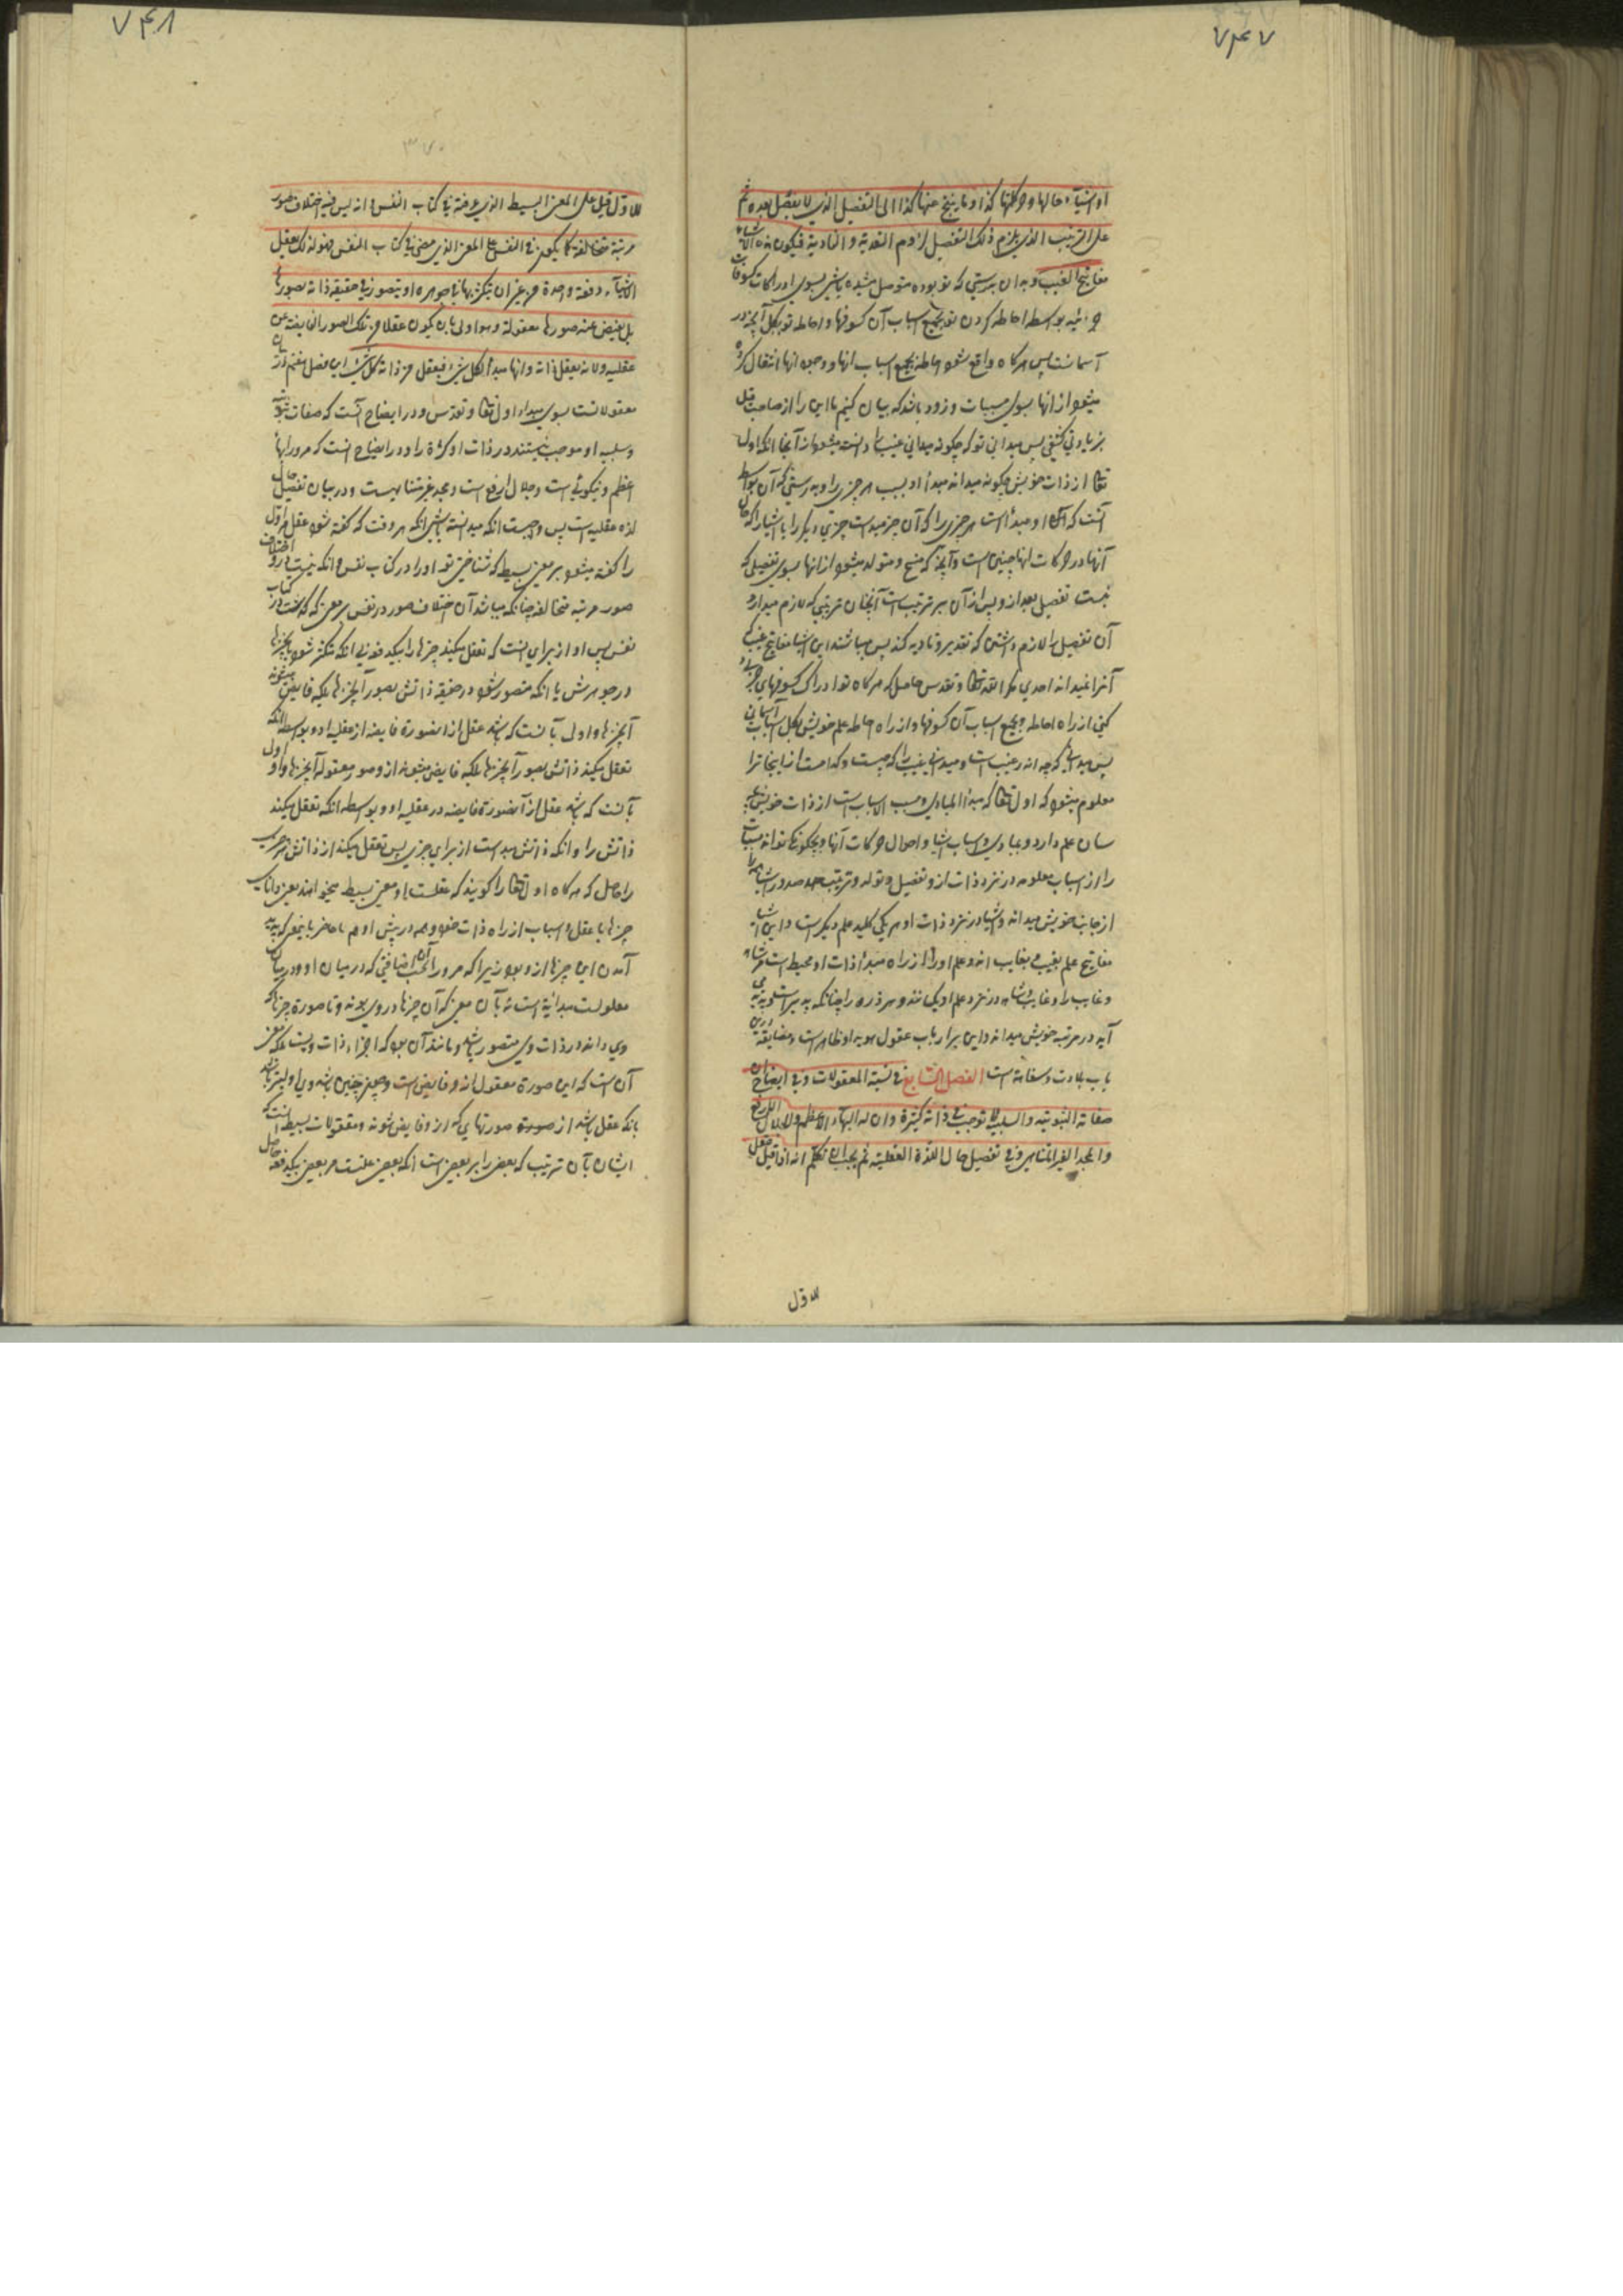 ۷۴۷
او اشیاء حالها و حرکاتها کذا و ما ینتج عنها کذا الی التفصیل الذی لا تفصیل بعده ثم
علی الترتیب الذی یلزم ذلک التفصیل لزوم التعدیة و التأدیة فیکون هذه الاشیاء
مفاتیح الغیب و بدان بدرستی که تو بوده متوصل شده باشی بسوی ادراکات کسوفات
جزئیه بواسطه احاطه کردن تو بجمیع اسباب آن کسوفها و احاطه تو بکل آنچه در
آسمانست پس هرگاه واقع شود احاطه بجمیع اسباب انها و وجود انها انتقال کرده
میشود از انها بسوی مسببات و زود باشد که بیان کنیم ما این را از صاحب قبل
بزیادتی کشفی پس میدانی تو که چگونه میدانی غیب را دانسته میشود از آنجا انکه اول
تعالی از ذات خویش چگونه میداند مبدأ او بسبب هر چیزی را و بدرستی که آن بواسطه
آنست که او مبدأ است هر چیزی را که آن چیز مبدأست چیزی دیگر را یا اشیا را که حال
آنها و حرکات انها چنین است و آنچه که منتج و متولد میشود از انها بسوی تفصیلی که
نیست تفصیل بعد از و پس از آن بر ترتیب است آنچنان ترتیبی که لازم میدارد
آن تفصیل را لازم داشتنی که تقدیر و تادیه کند پس میباشند این اشیا مفاتیح غیب که
آنرا نمیداند احدی مگر الله تعالی و تقدس حاصل که هرگاه تو ادراک کسوفهای جزئی
کنی از راه احاطه بجمیع اسباب آن کسوفها و از راه احاطه علم خویش بکل اسباب آسمانی
پس میدانی که چه اند غیب است و میدانی غیب را که چیست و کدامست از اینجا ترا
معلوم میشود که اول تعالی که مبدأ المبادی و مسبب الاسباب است از ذات خویش بچه
سان علم دارد و بمبادی و اسباب اشیا و احوال و حرکات آنها و بچگونگی تواند مسببات
را از اسباب معلومه در نزد ذات از و تفصیل و تولد و ترتیب صدور اشیا را
از جانب خویش میداند و اشیا در نزد ذات او هر یکی کلید علم دیگر است و این اشیا
مفاتیح علم بغیب و بغایب اند و علم او را از راه مبدأ ذات او محیط است هر شاهد
و غایب را و غایب و شاهد در نزد علم او یکسانند و هر ذره را چنانکه پدید
آید در مرتبه خویش میداند و این بر ارباب عقول هویدا و ظاهر است و مضایقه درین
باب بلادت و سفاهت است الفصل السابع فی نسبة المعقولات و فی ایضاح ان
صفاته الثبوتیه و السلبیه لا توجب فی ذاته کثرة و ان له البهاء الاعظم و الجلال الارفع
و المجد الغیر المتناهی و فی تفصیل حال اللذة العقلیة ثم یجب ان تعلم انه اذا قیل عقل
للاول
۷۴۸
۳۷۰
للاول قیل علی المعنی البسیط الذی عرفته فی کتاب النفس و انه لیس فیه اختلاف صور
مرتبة متخالفة کما یکون فی النفس علی المعنی الذی مضی فی کتاب النفس فهو لذلک یعقل
الاشیاء دفعة واحدة من غیر ان یتکثر بها فی جوهره او یتصور فی حقیقة ذاته بصورها
بل یفیض عنه صورها معقولة و هو اولی بان یکون عقلا من تلک الصور الفایضة عن
عقلیته و لانه یعقل ذاته و انها مبدأ لکل شیء فیعقل من ذاته کل شیء این فصل هفتم در بیان
معقولاتست بسوی مبداء اول تعالی و تقدس و در ایضاح آنست که صفات ثبوتیه
و سلبیه او موجب نیستند در ذات او کثرة را و در ایضاح انست که مرو را بهای
اعظم و نیکوئی است و جلال ارفع است و مجد غیر متناهیست و در بیان تفصیل حال
لذه عقلیه است پس واجبست انکه میدانسته باشی انکه هر وقت که گفته شود عقل مر اول
را گفته میشود بر معنی بسیط که شناختی تو او را در کتاب نفس و انکه نیست درو اختلاف
صور مرتبه متخالفه چنانکه میباشد آن اختلاف صور در نفس بر معنی که گذشت در کتاب
نفس پس او از برای انست که تعقل میکند چیزها را بیکدفعه بی انکه متکثر شود بچیزها
در جوهرش یا انکه متصور شود در حقیقة ذاتش بصور آنچیزها بلکه فایض میشود
آنچیزها و اولی بآنست که باشد عقل از انصورة فایضه از عقلیه او و بواسطه انکه
تعقل میکند ذاتش بصور آنچیزها بلکه فایض میشود از و صور معقوله آنچیزها و او اولی
بآنست که باشد عقل از آنصورة فایضه در عقلیه او و بواسطه انکه تعقل میکند
ذاتش را و انکه ذاتش مبدأست از برای چیزی پس تعقل میکند از ذاتش هر چیزی
را حاصل که هرگاه اول تعالی را گویند که عقلست او معنی بسیط میخواهند یعنی دانای
چیزها با عقل و اسباب از راه ذات خود و همه در پیش او هم حاضر باینمعنی که پدید
آمدن این چیزها از و بود زیرا که مرو را بحسب آن اضافتی که در میان او و در میان
معلولست مبدائیة است نه بآن معنی که آن چیزها در وی بوند و تا صورة چیزها که
وی داند در ذات وی متصور باشد و مانند آن بود که اجزاء ذات ویست بلکه معنی
آن است که این صورة معقول اند و فایض است و چیزی چنین باشد وی اولیتر باشد
بانکه عقل باشد از صورة صورتهایی که از و فایض شوند و معقولات بسیط است که
ایشان بآن ترتیب که بعضی را بر بعضی است انکه بعضی علتست مر بعضی بیکدفعه حاصل